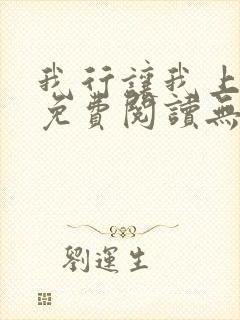 我行讓我上
免費閱讀無
劉運生